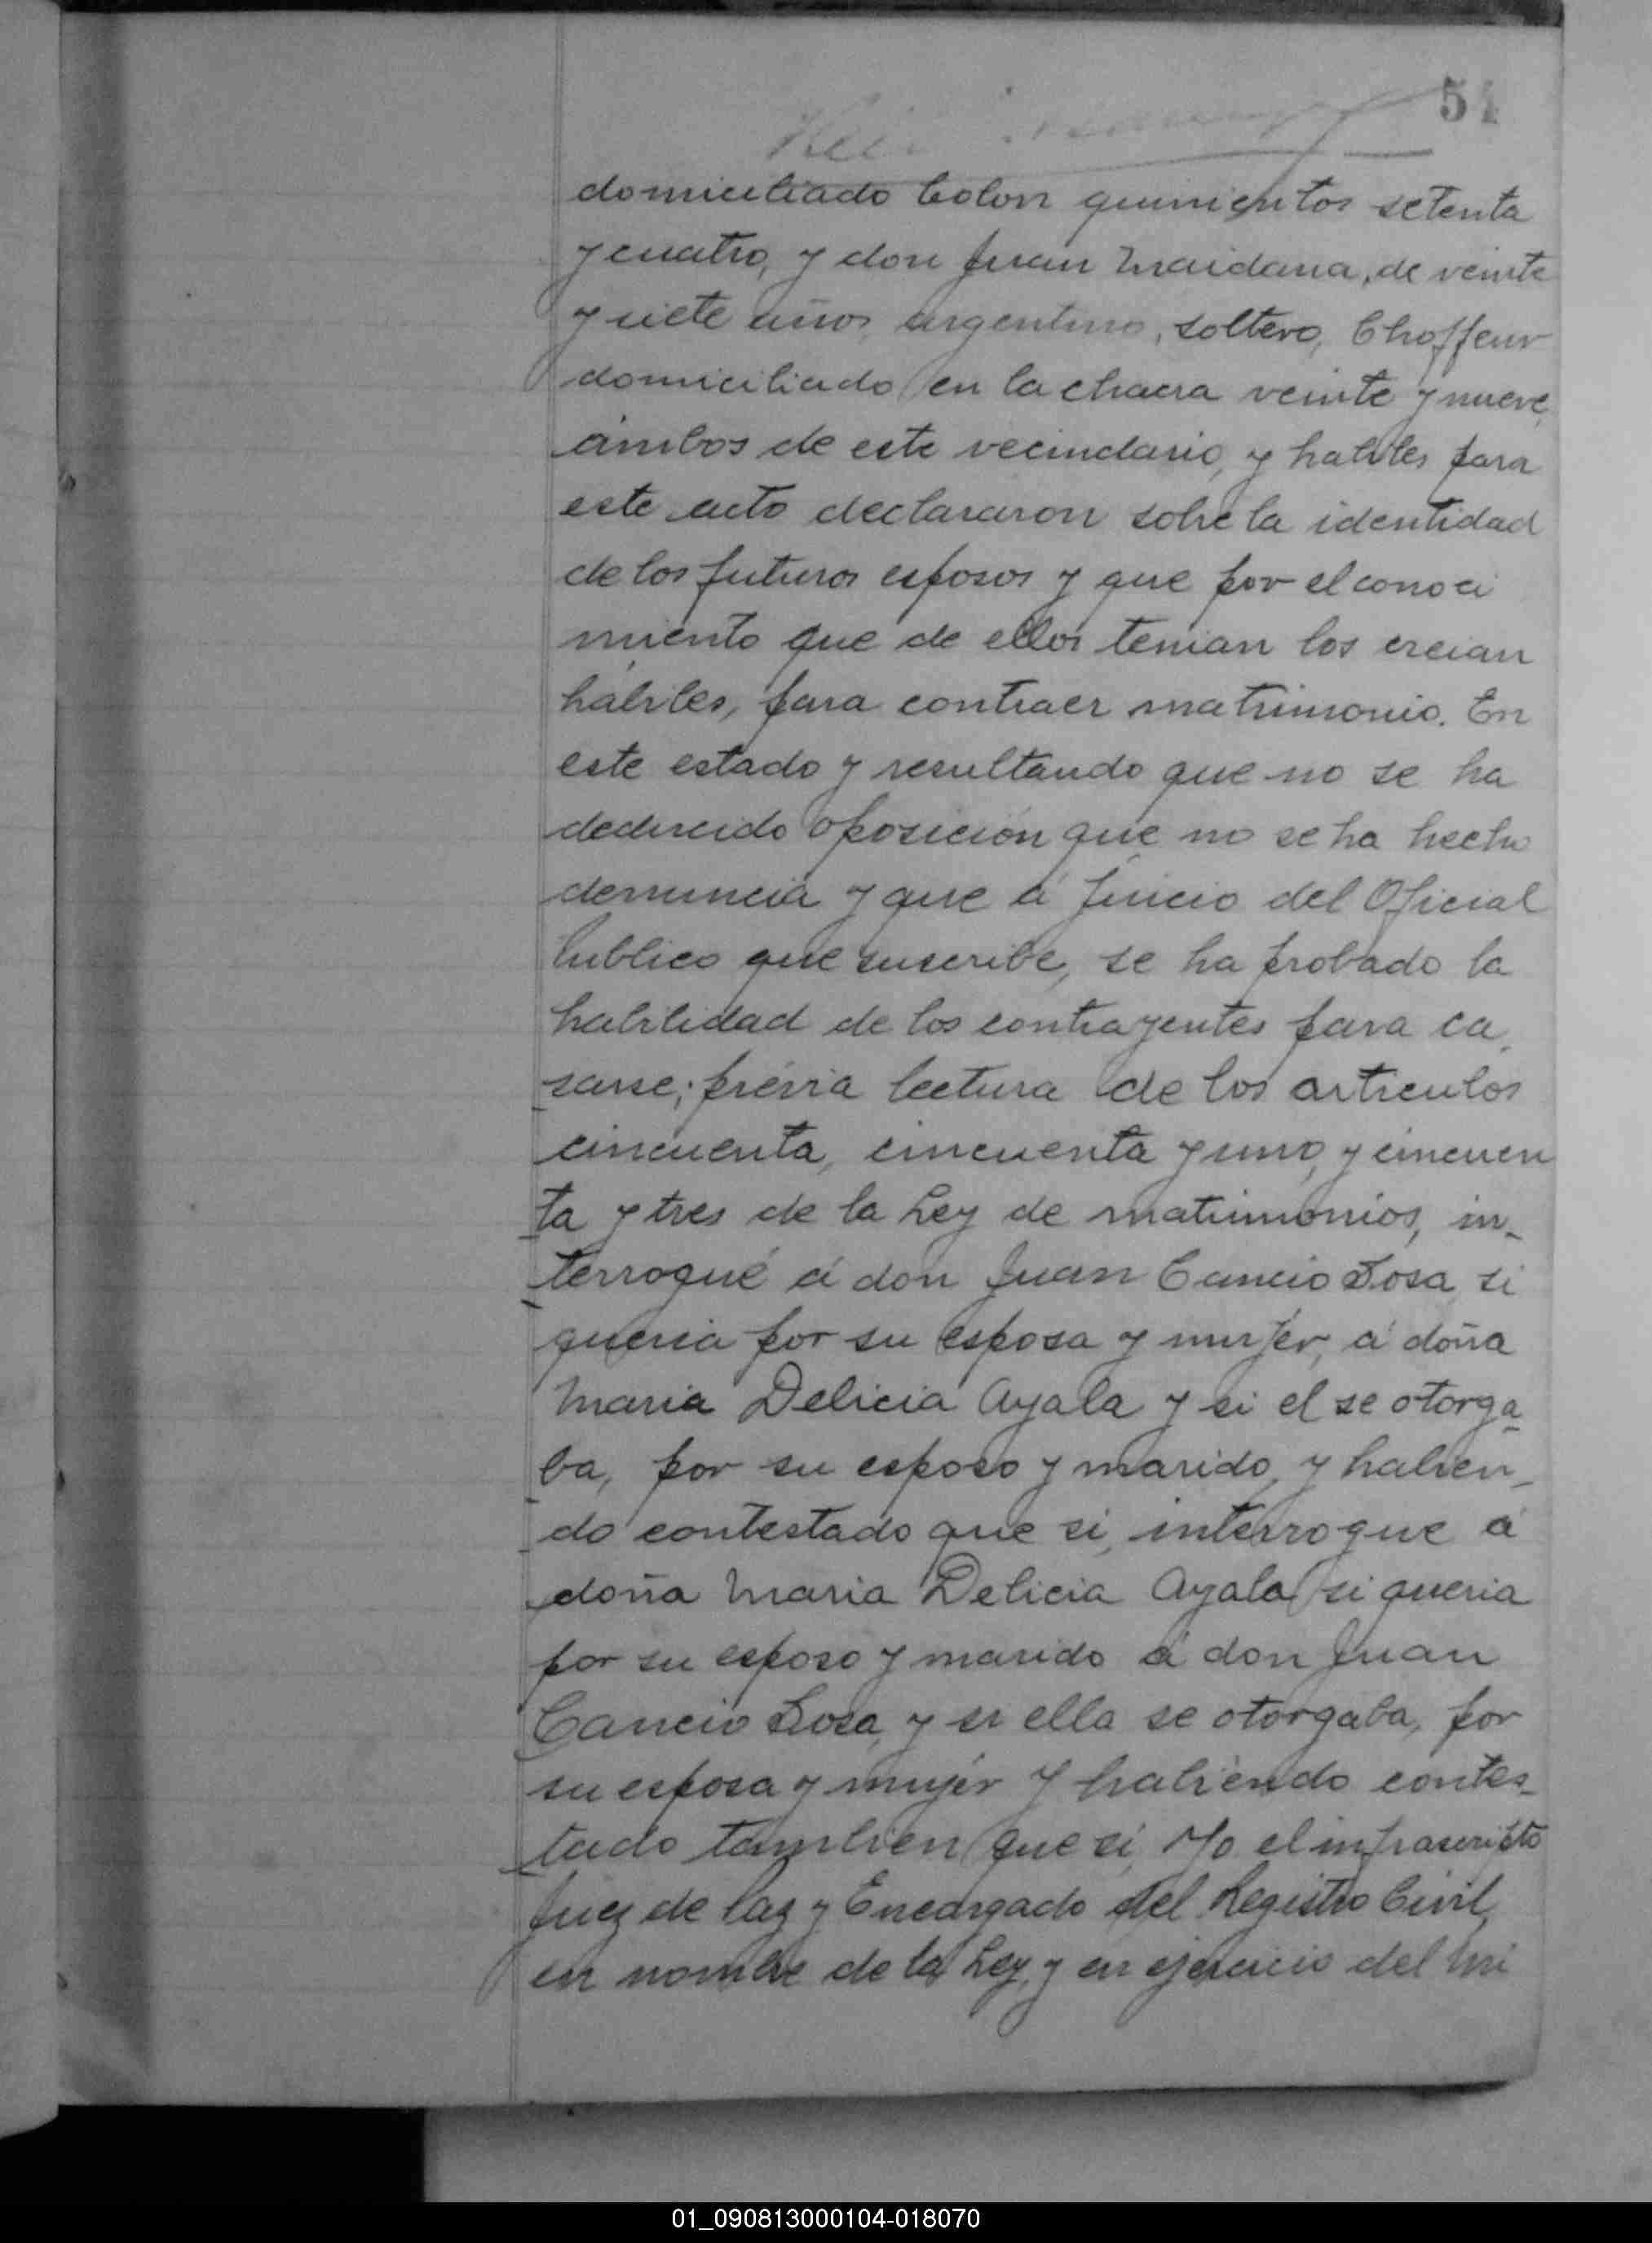 54
domiciliado Colon quinientos setenta
y cuatro, y don Juan Maidana, de veinte
y siete años, argentino, soltero, Choffeur
domiciliado en la chacra veinte y nueve,
ámbos de este vecindario, y habiles para
este acto declararon sobre la identidad
de los futuros esposos y que por el conoci
miento que de ellos tenian los creian
hábiles, para contraer matrimonio. En
este estado y resultando que no se ha
deducido oposición que no se ha hecho
denuncia y que á juicio del Oficial
Publico que suscribe, se ha probado la
habilidad de los contrayentes para ca
sarse; prévia lectura de los articulos
cincuenta, cincuenta y uno, y cincuen
ta y tres de la Ley de matrimonios, in-
terrogué á don Juan Cancio Sosa, si
queria por su esposa y mujer, á doña
Maria Delicia Ayala y si el se otorga
ba, por su esposo y marido, y habien-
do contestado que si, interrogue á
doña Maria Delicia Ayala si queria
por su esposo y marido á don Juan
Cancio Sosa, y si ella se otorgaba, por
su esposa y mujér y habiendo contes-
tado tambien que sí, Yo el infrascripto
Juez de Paz y Encargado del Registro Civil,
en nombre de la Ley, y en ejercicio del Mi
01_090813000104-018070